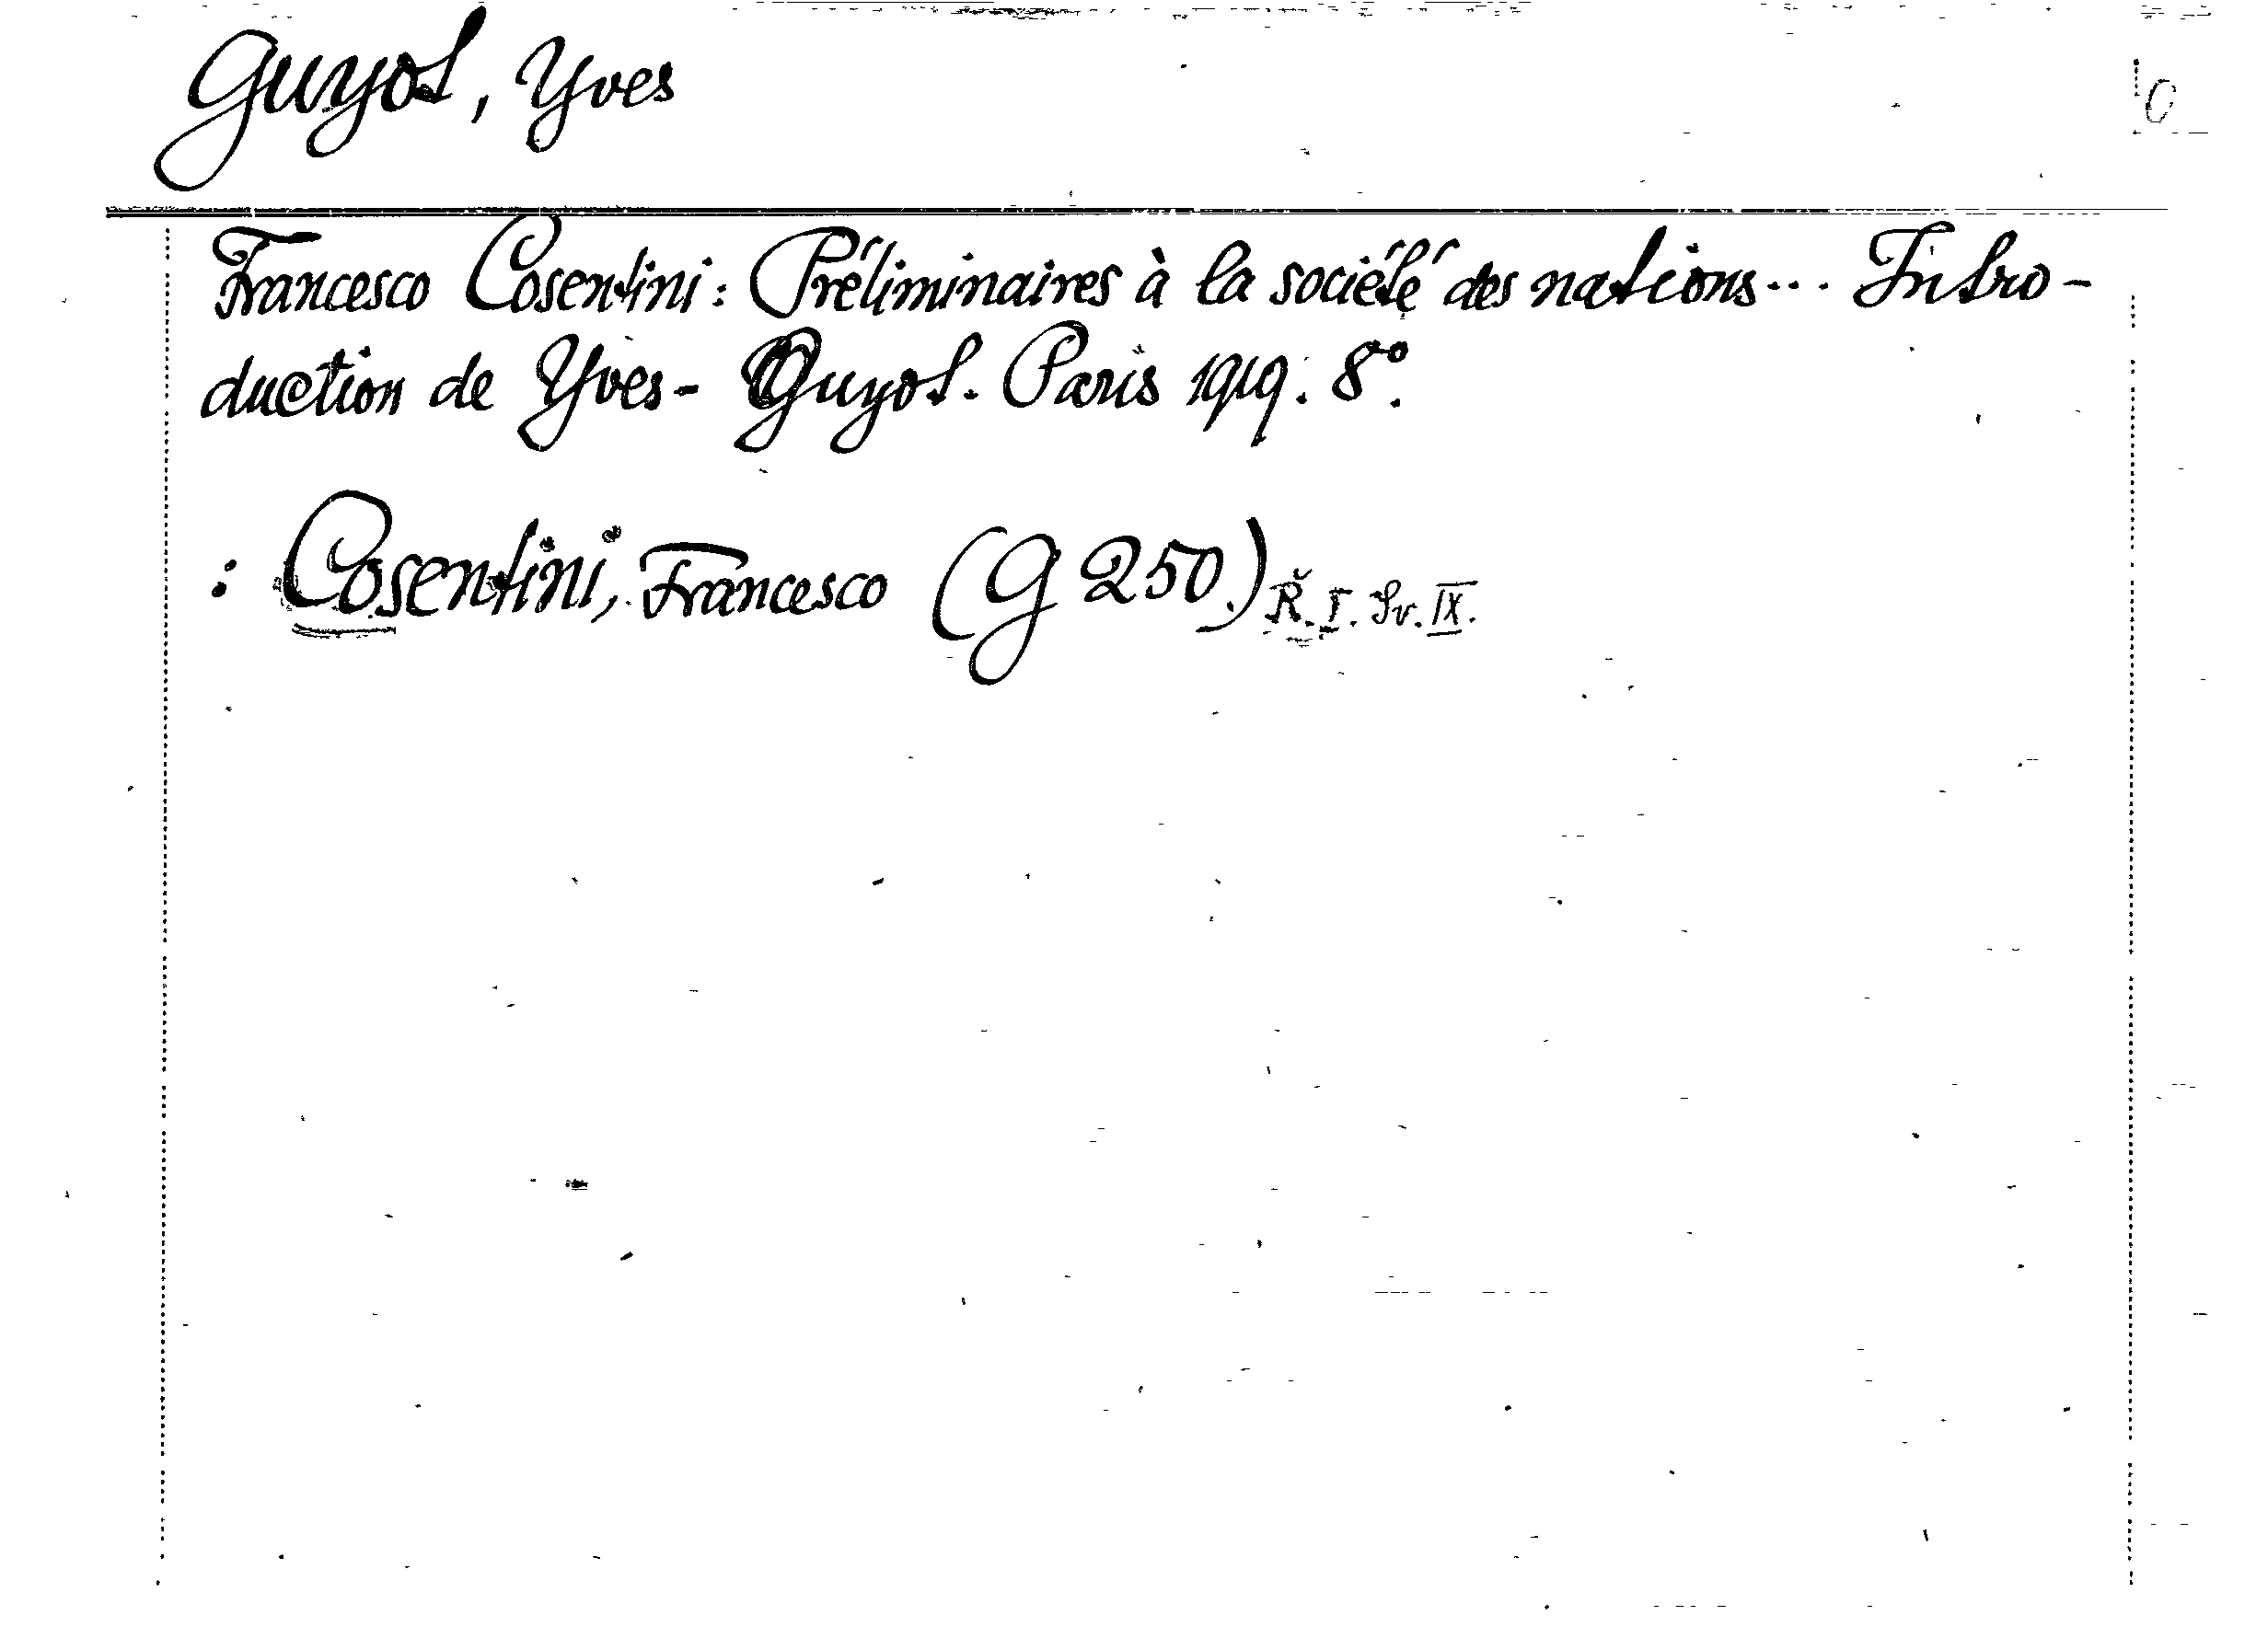 Guyot, Yves
Francesco Cosentini: Préliminaires à la société des nations... Intro-
duction de Yves-Guyot. Paris 1919. 8°.
: Cosentini, Francesco (G 250.) Ř. I. Sv. IX.